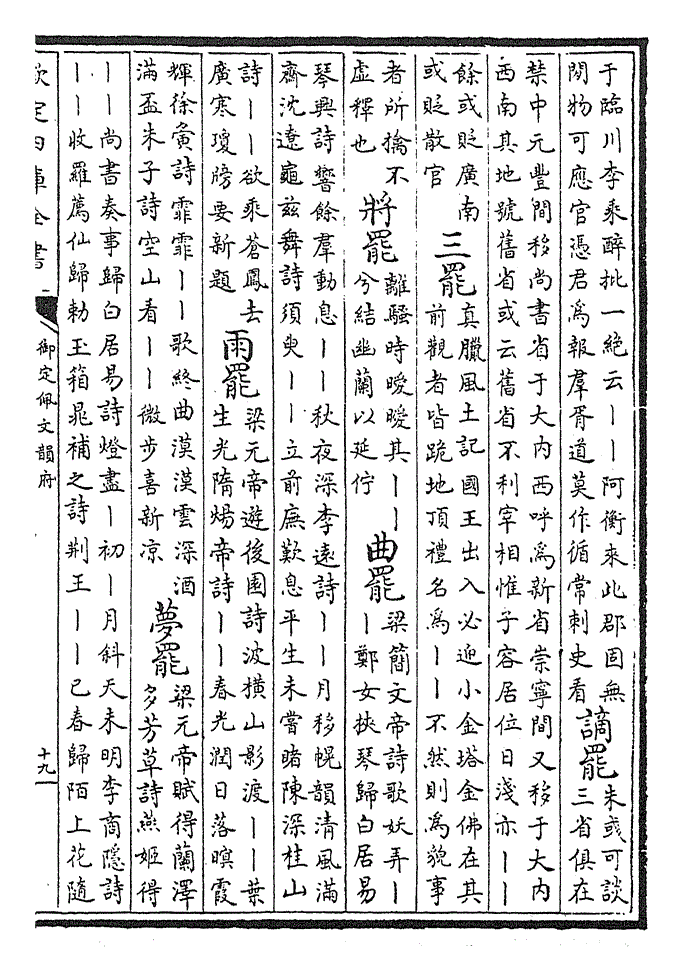 于臨川李乘醉批一絶云――阿衡來此郡固無
閒物可應官憑君為報羣胥道莫作循常刺史看
謫罷
朱彧可談
三省俱在
禁中元豐間移尚書省于大内西呼為新省崇寧間又移于大内
西南其地號舊省或云舊省不利宰相惟子容居位日淺亦――
餘或貶廣南
或貶散官
三罷
真臘風土記國王出入必迎小金塔金佛在其
前觀者皆跪地頂禮名為――不然則為貌事
者所擒不
虛釋也
將罷
離騷時曖曖其――
兮結幽蘭以延佇
曲罷
梁簡文帝詩歌妖弄―
―鄭女挾琴歸白居易
琴興詩響餘羣動息――秋夜深李遠詩――月移幌韻清風滿
齋沈遼龜兹舞詩須臾――立前廡歎息平生未嘗睹陳深桂山
詩――欲乘蒼鳳去
廣寒瓊牓要新題
雨罷
梁元帝遊後園詩波横山影渡――葉
生光隋煬帝詩――春光潤日落暝霞
輝徐夤詩霏霏――歌終曲漠漠雲深酒
滿盃朱子詩空山看――微步喜新凉
夢罷
梁元帝賦得蘭澤
多芳草詩燕姬得
――尚書奏事歸白居易詩燈盡―初―月斜天未明李商隱詩
――收羅薦仙歸勅玉箱晁補之詩荆王――已春歸陌上花隨
欽定四庫全書
御定佩文韻府
十九